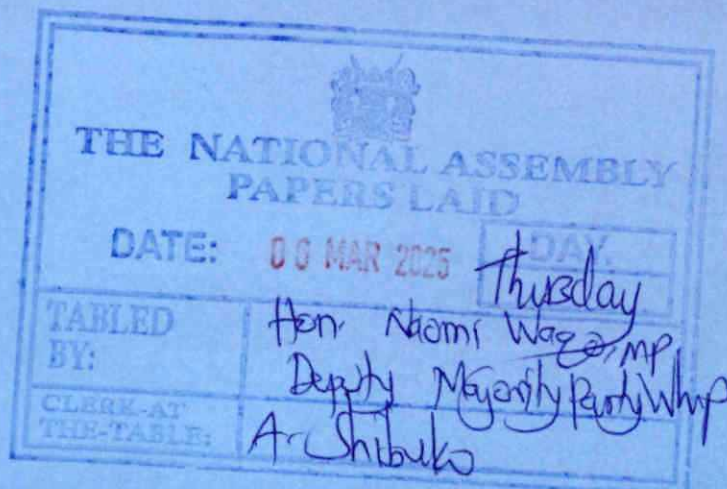 THE NATIONAL ASSEMBLY
PAPERS LAID
DATE: 06 MAR 2025 DAY.
Thursday
TABLED BY: Hon. Naomi Waqo, MP
Deputy Majority Party Whip
CLERK-AT THE-TABLE: A. Shibuko